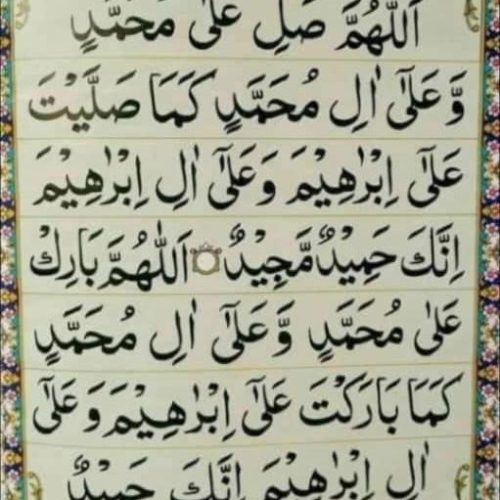 اَللّٰهُمَّ صَلِّ عَلٰى مُحَمَّدٍ
وَّعَلٰٓى اٰلِ مُحَمَّدٍ كَمَا صَلَّيْتَ
عَلٰٓى اِبْرٰهِيْمَ وَعَلٰٓى اٰلِ اِبْرٰهِيْمَ
اِنَّكَ حَمِيْدٌ مَّجِيْدٌ ۝ اَللّٰهُمَّ بَارِكْ
عَلٰى مُحَمَّدٍ وَّعَلٰٓى اٰلِ مُحَمَّدٍ
كَمَا بَارَكْتَ عَلٰٓى اِبْرٰهِيْمَ وَعَلٰٓى
اٰلِ اِبْرٰهِيْمَ اِنَّكَ حَمِيْدٌ